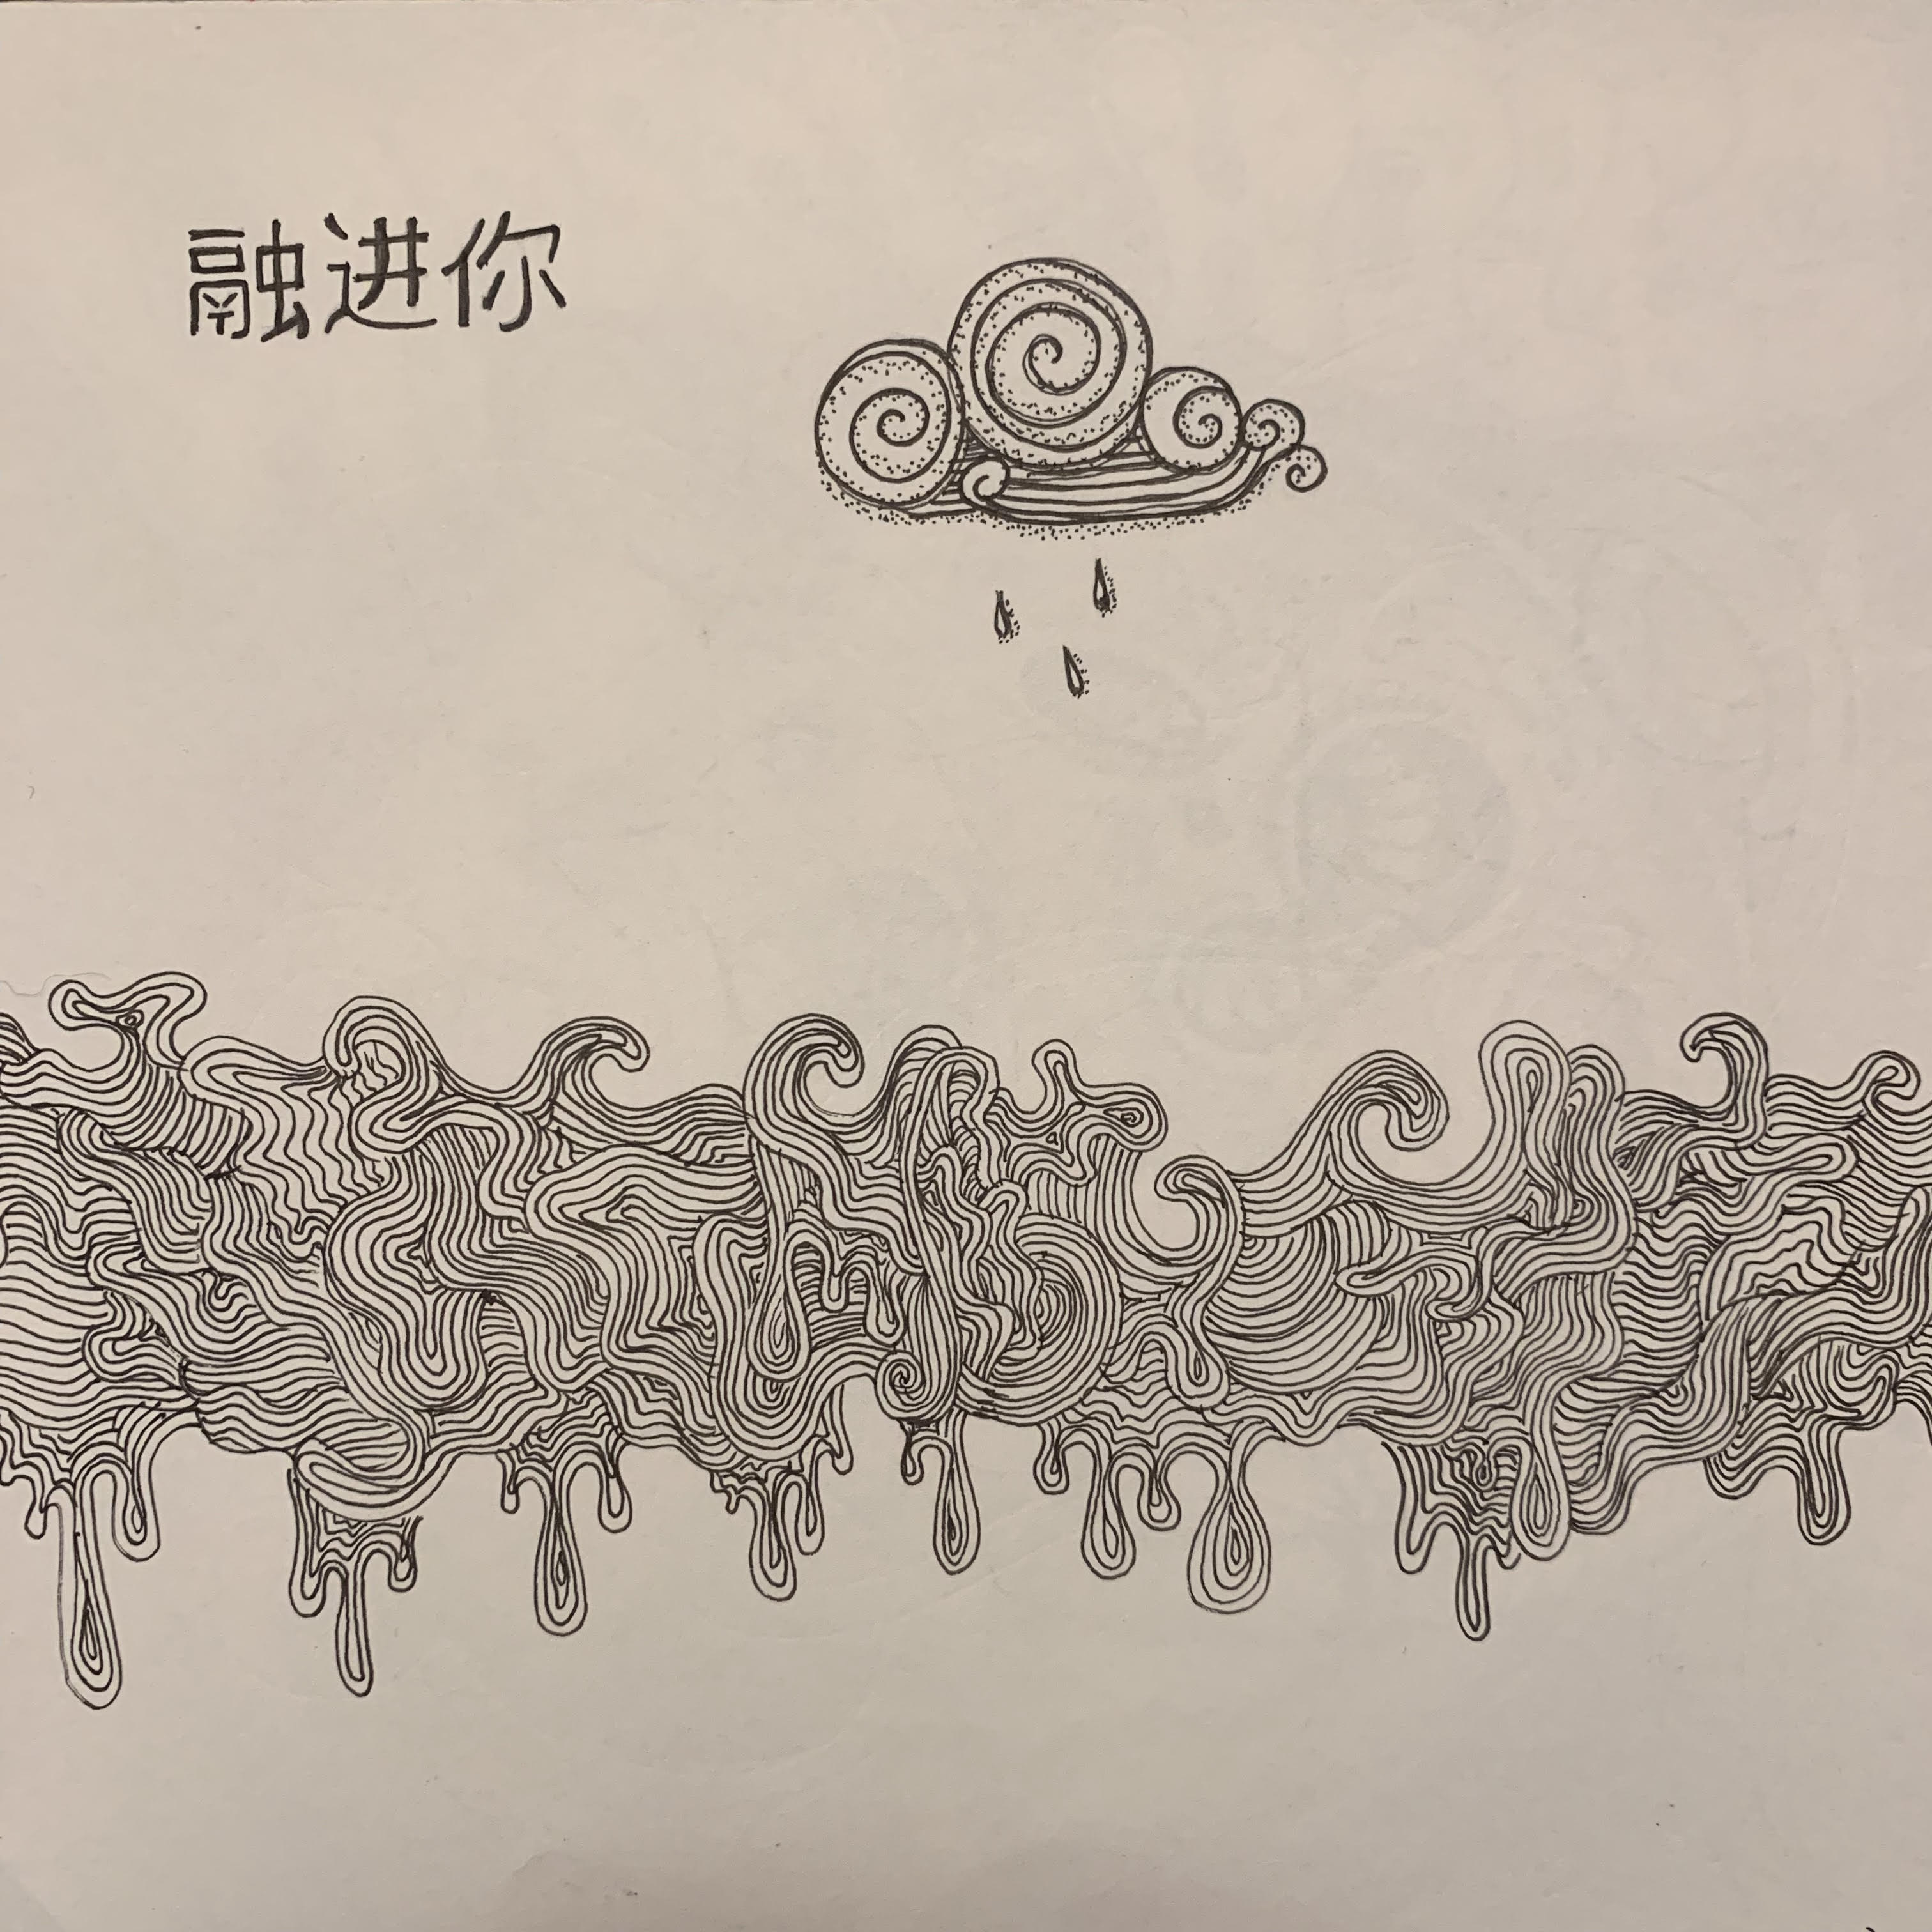 融进你